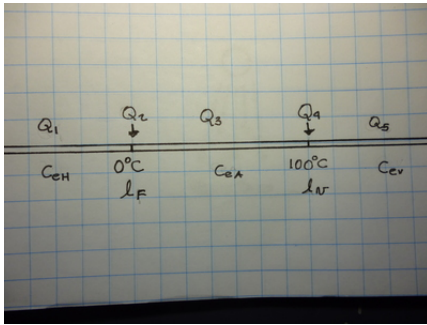 Q₁ Q₂ Q₃ Q₄ Q₅
CeH 0°C CeA 100°C Cev
lF lv